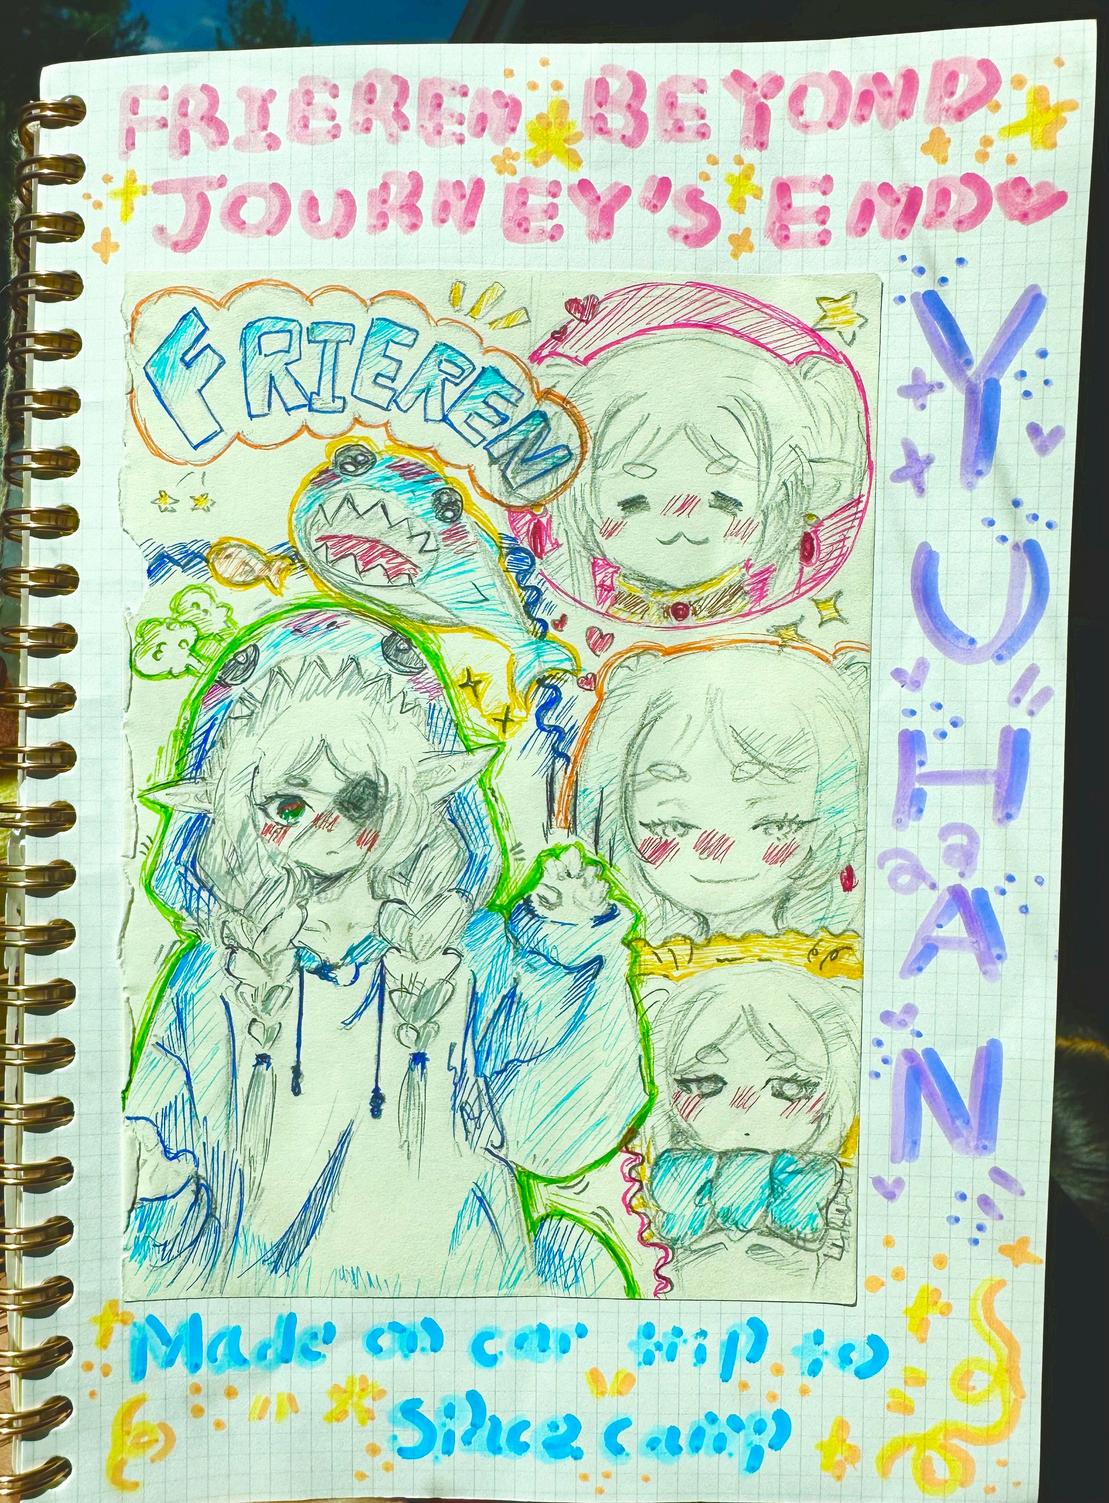 FRIEREN BEYOND
JOURNEY'S END
FRIEREN
YUHAN
Made on car trip to
camp